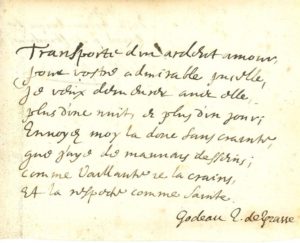 Transporté d'un ardent amour,
pour vostre admirable pucelle,
Je veux demeurer avec elle,
plus d'une nuit, et plus d'un jour;
Envoyez moy la donc sans crainte,
que j'aye de mauvais desseins;
comme vaillante je la crains,
Et la respecte comme sainte.
Godeau E. de Grasse